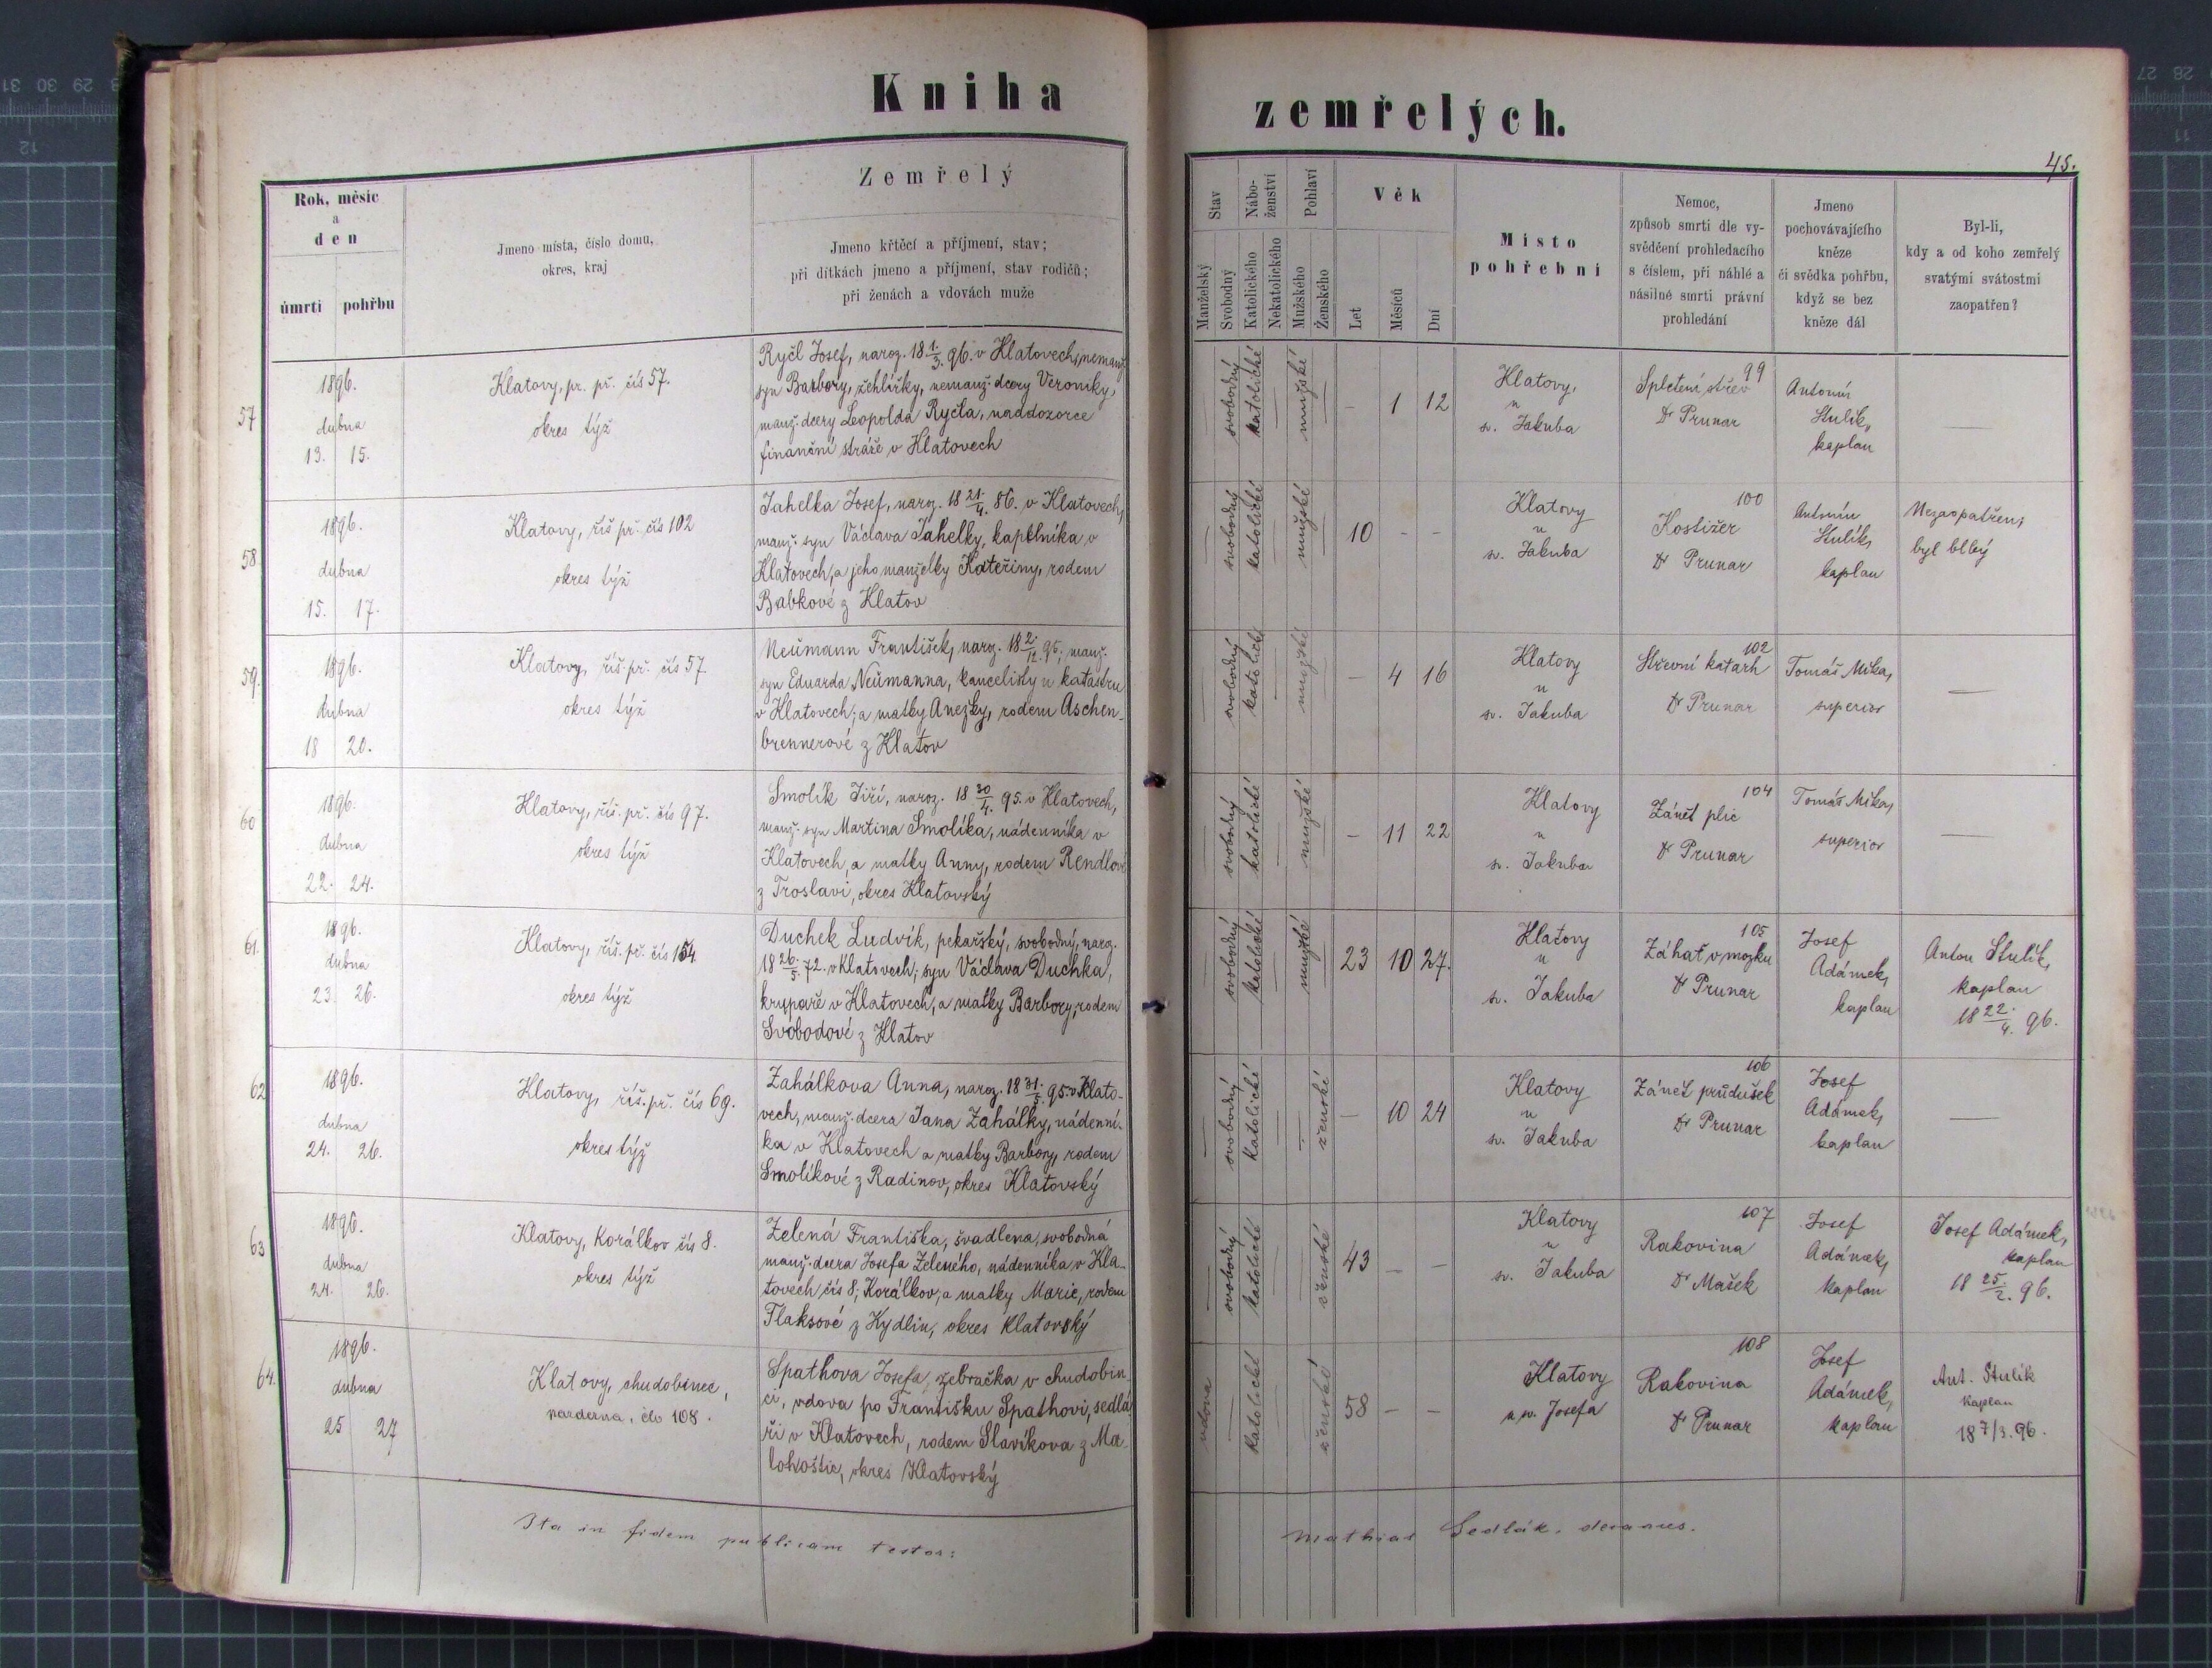 Kniha
zemřelých.
45.
Rok, měsíc
a
den
úmrtí
pohřbu
Jmeno místa, číslo domu,
okres, kraj
Zemřelý
Jmeno křtěcí a příjmení, stav;
při dítkách jmeno a příjmení, stav rodičů;
při ženách a vdovách muže
Stav
Manželský
Svobodný
Nábo-
ženství
Katolického
Nekatolického
Pohlaví
Mužského
Ženského
Věk
Let
Měsíců
Dní
Místo
pohřební
Nemoc,
způsob smrti dle vy-
svědčení prohledacího
s číslem, při náhlé a
násilné smrti právní
prohledání
Jmeno
pochovávajícího
kněze
či svědka pohřbu,
když se bez
kněze dál
Byl-li,
kdy a od koho zemřelý
svatými svátostmi
zaopatřen?
57
1896.
dubna
13. 15.
Klatovy, pr. př. čís 57.
okres týž
Ryčl Josef, naroz. 18 1./3. 96. v Klatovech, nemanž.
syn Barbory, žehlířky, nemanž. dcery Veroniky,
manž. dcery Leopolda Ryčla, naddozorce
finanční stráže v Klatovech
svobodný
katolické
mužské
– 1 12
Klatovy,
u
sv. Jakuba
99
Spletení střev
Dr Prunar
Antonín
Stulík,
kaplan
58
1896.
dubna
15. 17.
Klatovy, říš. př. čís 102
okres týž
Jahelka Josef, naroz. 18 21./4. 86. v Klatovech,
manž. syn Václava Jahelky, kapelníka v
Klatovech, a jeho manželky Kateřiny, rodem
Babkové z Klatov
svobodný
katolické
mužské
10 - -
Klatovy
u
sv. Jakuba
100
Kostižer
Dr Prunar
Antonín
Stulík,
kaplan
Nezaopatřen;
byl blbý
59.
1896.
dubna
18 20.
Klatovy, říš. př. čís 57
okres týž
Neumann František, naroz. 18 2./12. 95; manž.
syn Eduarda Neumanna, kancelisty u katastru
v Klatovech; a matky Anežky, rodem Aschen-
brennerové z Klatov
svobodný
katolické
mužské
– 4 16
Klatovy
u
sv. Jakuba
102
Střevní katarh
Dr Prunar
Tomáš Mika,
superior
60
1896.
dubna
22. 24.
Klatovy, říš. př. čís 97.
okres týž
Smolík Jiří, naroz. 18 30/4. 95. v Klatovech,
manž. syn Martina Smolíka, nádenníka v
Klatovech, a matky Anny, rodem Rendlové
z Troslavi, okres Klatovský
svobodný
katolické
mužské
– 11 22
Klatovy
u
sv. Jakuba
104
Zánět plic
Dr Prunar
Tomáš Mika,
superior
61.
1896.
dubna
23. 26.
Klatovy, říš. př. čís 154.
okres týž
Duchek Ludvík, pekařský, svobodný, naroz.
18 26./5. 72. v Klatovech; syn Václava Duchka,
krupaře v Klatovech, a matky Barbory, rodem
Svobodové z Klatov
svobodný
katolické
mužské
23 10 27.
Klatovy
u
sv. Jakuba
105
Záhať v mozku
Dr Prunar
Josef
Adámek,
kaplan
Anton Stulík,
kaplan
18 22./4. 96.
62
1896.
dubna
24. 26.
Klatovy, říš. př. čís 69.
okres týž
Zahálkova Anna, naroz. 18 31./5. 95. v Klato-
vech, manž. dcera Jana Zahálky, nádenní-
ka v Klatovech a matky Barbory, rodem
Smolíkové z Radinov, okres Klatovský
svobodný
katolické
ženské
– 10 24
Klatovy
u
sv. Jakuba
106
Zánět průdušek
Dr Prunar
Josef
Adámek,
kaplan
63
1896.
dubna
24. 26.
Klatovy, Korálkov čís 8.
okres týž
Zelená Františka, švadlena, svobodná
manž. dcera Josefa Zeleného, nádenníka v Kla-
tovech čís 8, Korálkov, a matky Marie, rodem
Flaksové z Kydlin, okres Klatovský
svobodný
katolické
ženské
43 – –
Klatovy
u
sv. Jakuba
107
Rakovina
Dr Mašek
Josef
Adámek,
kaplan
Josef Adámek,
kaplan
18 25./2. 96.
64.
1896.
dubna
25 27
Klatovy, chudobinec,
čís 108.
Spathova Josefa, žebračka v chudobin-
ci, vdova po Františku Spathovi, sedlá-
ři v Klatovech, rodem Slavíkova z Ma-
lohoštic, okres Klatovský
vdova
katolické
ženské
58 – –
Klatovy
u sv. Josefa
108
Rakovina
Dr Prunar
Josef
Adámek,
kaplan
Ant. Stulík
kaplan
18 7/3. 96.
Ita in fidem publicam testor:
Mathias Sedlák, decanus.